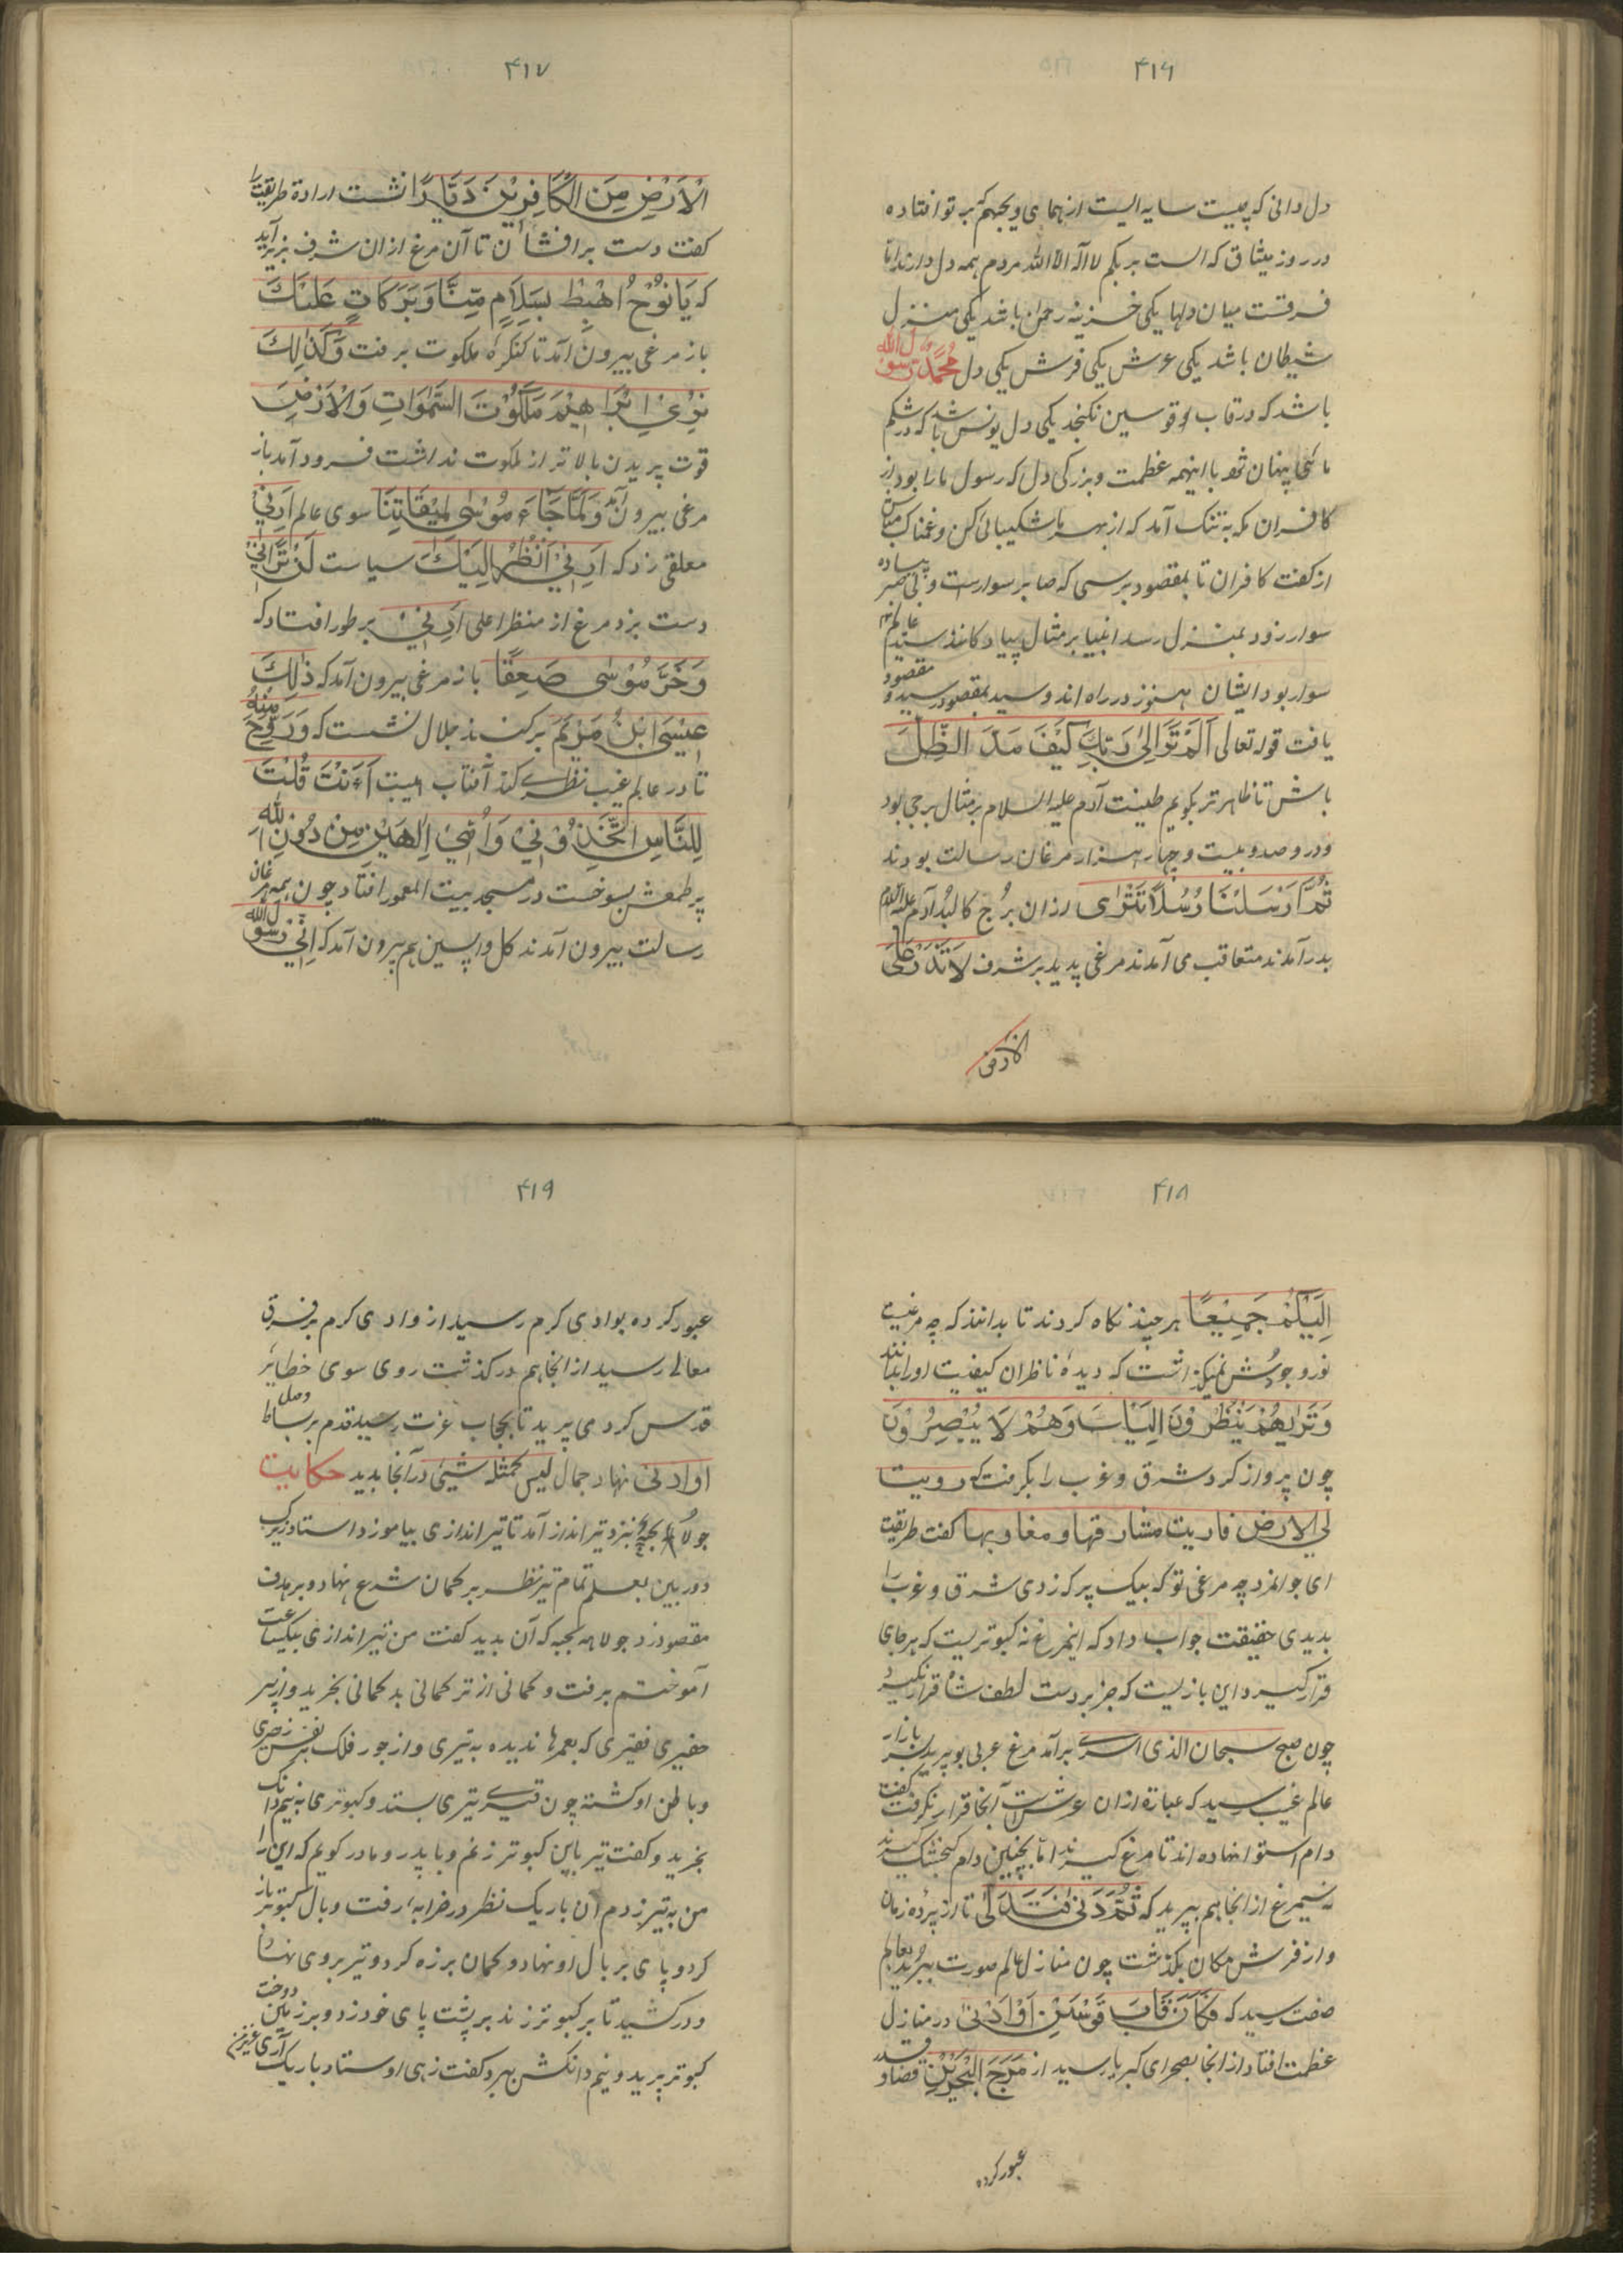 ۴۱۶
دل دانی که چیست سایه الیست از همای ویحبهم که بر تو افتاده
در روز میثاق که الست بربکم لا اله الا الله مردم همه دل دارند اما
فرقست میان دلها یکی خزینه رحمن باشد یکی منزل
شیطان باشد یکی عرش یکی فرش یکی دل محمد رسول الله
باشد که در قاب او قوسین نکنجد یکی دل یونس باشد که در شکم
ماهی پنهان شود با اینهمه عظمت و بزرکی دل که رسول ما را بود از
کافران مکه به تنک آمد که از بهر ما شکیبائی کن و غمناک مباش
از کفت کافران تا بمقصود برسی که صابر سوارست و بی صبر پیاده
سوار زود بمنزل رسد انبیا بر مثال پیادکانند سید عالم
سوار بود ایشان هنوز در راه اند و سید بمقصود رسید و مقصود
یافت قوله تعالی اَلَمْ تَرَ اِلیٰ رَبِّكَ كَیْفَ مَدَّ الظِّلَّ
باش تا ظاهرتر بکویم طینت آدم علیه السلام بر مثال برجی بود
و در و صد و بیست و چهار هزار مرغان رسالت بودند
ثُمَّ اَرْسَلْنَا رُسُلَنَا تَتْرٰی ازان بُرج کالبُد آدم علیه السلام
بدر آمدند متعاقب می آمدند مرغی پدید بر شرف لَا تَذَرْ عَلَی
الارض
۴۱۷
الْاَرْضِ مِنَ الْكَافِرِیْنَ دَیَّارًا نشست ارادة طریقت را
کفت دست برافشان تا آن مرغ ازان شرف بزیر آید
که یَا نُوْحُ اهْبِطْ بِسَلَامٍ مِّنَّا وَبَرَكَاتٍ عَلَیْكَ
باز مرغی بیرون آمد تا کنکرهٔ ملکوت برفت وَكَذٰلِكَ
نُرِیْ اِبْرَاهِیْمَ مَلَكُوْتَ السَّمٰوَاتِ وَالْاَرْضِ
قوت پریدن بالاتر از ملکوت نداشت فرود آمد باز
مرغی بیرون آمد وَلَمَّا جَاءَ مُوْسٰی لِمِیْقَاتِنَا سوی عالم اَرِنِیْ
معلقی زد که اَرِنِیْ اَنْظُرْ اِلَیْكَ سیاست لَنْ تَرَانِیْ
دست بزد مرغ از منظر اعلی اَرِنِیْ بر طور افتاد که
وَخَرَّ مُوْسٰی صَعِقًا باز مرغی بیرون آمد که ذٰلِكَ
عِیْسَی ابْنُ مَرْیَمَ بر کنبد جلال نشست که وَرُوْحٌ مِنْهُ
تا در عالم غیب نظری کند آفتاب هیبت اَءَنْتَ قُلْتَ
لِلنَّاسِ اتَّخِذُوْنِیْ وَاُمِّیَ اِلٰهَیْنِ مِنْ دُوْنِ اللّٰهِ
پر طمعش بسوخت در مسجد بیت المعمور افتاد چون همه مرغان
رسالت بیرون آمدند کل واپسین هم بیرون آمد که اِنِّیْ رَسُوْلُ اللّٰهِ
۴۱۸
اِلَیْكُمْ جَمِیْعًا هر چند نکاه کردند تا بدانند که چه مرغیست
نور وجودش نمیکذاشت که دیدهٔ ناظران کیفیت اورا بدانند
وَتَرٰیهُمْ یَنْظُرُوْنَ اِلَیْكَ وَهُمْ لَا یُبْصِرُوْنَ
چون پرواز کرد شرق و غرب را بکرفت که رویت
لی الارض فاریت مشارقها و مغاربها کفت طریقت
ای جوانمرد چه مرغی تو که بیک پر که زدی شرق و غرب را
بدیدی حقیقت جواب داد که این مرغ نه کبوتریست که بر جای
قرار کیرد این بازیست که جز بر دست لطف شاه قرار نکیرد
چون صبح سبحان الذی اسری برآمد مرغ عربی بو پرید بر بازار
عالم غیب رسید که عبارة ازان عرش است آنجا قرار نکرفت کفت
دام استوا نهاده اند تا مرغ کیرند اما بچنین دام کنجشک کیرند
نه سیمرغ از انجا هم بپرید که ثُمَّ دَنٰی فَتَدَلّٰی تا از پردهٔ زمان
و از فرش مکان بکذشت چون منازل عالم صورت ببرید بعالم
صفت رسید که فَكَانَ قَابَ قَوْسَیْنِ اَوْ اَدْنٰی در منازل
عظمت افتاد از انجا بصحرای کبریا رسید از مَرَجَ الْبَحْرَیْنِ قضا و قدر
عبور کرده
۴۱۹
عبور کرده بوادی کرم رسید از وادی کرم بر فرق
معالی رسید از انجا هم درکذشت روی سوی خطایر
قدس کرد می پرید تا بحجاب عزت رسید قدم بر بساط وصل
او ادنی نهاد جمال لیس کمثله شیئ در آنجا بدید حکایت
جولاهه بچهٔ نزد تیرانداز آمد تا تیر اندازی بیاموزد استاد زیرک
دوربین بعلم تمام تیر نظر بر کمان شرع نهاد و بر هدف
مقصود زد جولاهه بچه که آن بدید کفت من تیر اندازی بیکساعت
آموختم برفت و کمانی از ترکمانی بد کمانی بخرید و از پیر
حقیری فقیری که بعمرها ندیده به تیری و از جور فلک
و باطن او کشته چون تیری بستد و کبوتری به نیم دانک
بخرید و کفت تیر باین کبوتر زنم و با پدر و مادر کویم که این را
من به تیر زدم آن باریک نظر در خرابه رفت و بال کبوتر باز
کرد و پای بر بال او نهاد و کمان بر زه کرد و تیر بروی نهاد
و درکشید تا بر کبوتر زند بر پشت پای خود زد و بر زمین دوخت
کبوتر پرید و نیم دانکش ببرد کفت زهی اوستاد باریک آری عزیز من